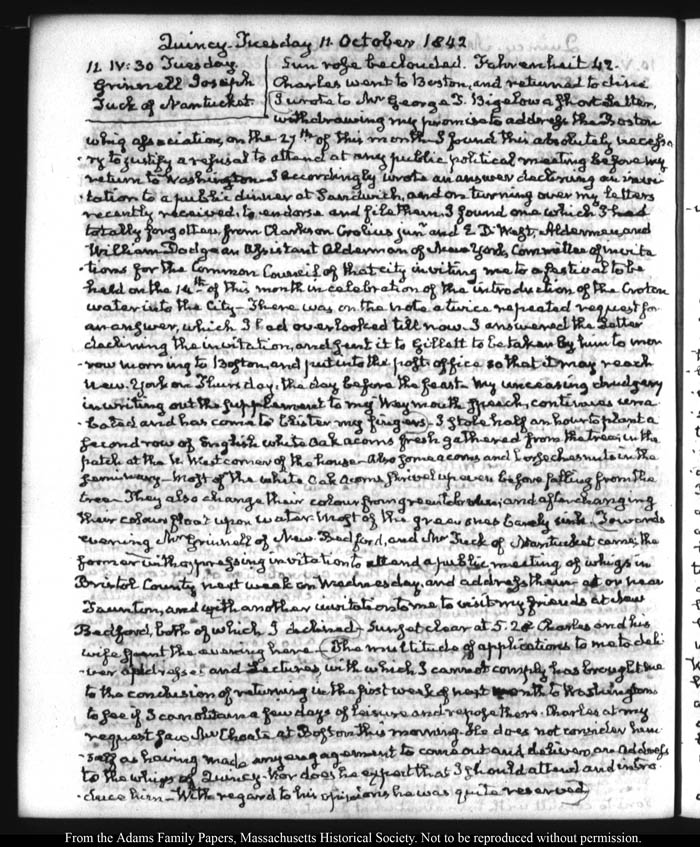 Quincy. Tuesday 11. October 1842
11. IV:30 Tuesday.
Grinnell Joseph
Tuck of Nantucket
Sun rose beclouded. Fahrenheit 42.
Charles went to Boston, and returned to dine
I wrote to Mr George T. Bigelow a short Letter,
withdrawing my promise to address the Boston
whig association, on the 27th of this month. I found this absolutely necessa-
ry to justify a refusal to attend at any public political meeting before my
return to Washington. I accordingly wrote an answer declining an invi-
tation to a public dinner at Sandwich, and on turning over my Letters
recently received, to endorse and file them, I found one which I had
totally forgotten, from Clarkson Crolius junr and E. D. West, Aldermen, and
William Dodge an Assistant Alderman of New York, Committee of invita-
tions for the Common Council of that city inviting me to a festival to be
held on the 14th of this month in celebration of the introduction of the Croton
water into the City. There was on the note a twice repeated request for
an answer, which I had overlooked till now. I answered the Letter
declining the invitation, and sent it to Gillett to be taken by him to mor-
row morning to Boston, and put into the post-office so that it may reach
New-York on Thursday, the day before the feast. My unceasing drudgery
in writing out the supplement to my Weymouth speech, continues una-
bated and has come to blister my fingers. I stole half an hour to plant a
second row of English white Oak acorns fresh gathered from the tree, in the
patch at the N. West corner of the house. Also some acorns and horse chesnuts in the
seminary. Most of the white Oak acorns shrivel up even before falling from the
tree. They also change their colour from green to brown; and after changing
their colour float upon water. Most of the green ones barely sink. Towards
evening Mr Grinnell of New Bedford, and Mr Tuck of Nantucket came; the
former with a pressing invitation to attend a public meeting of whigs in
Bristol County next week on Wednesday, and address them at or near
Taunton, and with another invitation to me to visit my friends at New
Bedford, both of which I declined. Sunset clear at 5.20 Charles and his
wife spent the evening here. The multitude of applications to me to deli-
ver addresses and Lectures, with which I cannot comply has brought me
to the conclusion of returning in the first week of next month to Washington
to see if I can obtain a few days of leisure and repose there. Charles at my
request saw Mr Choate at Boston this morning. He does not consider him-
self as having made any engagement to come out and deliver an Address
to the whigs of Quincy. Nor does he expect that I should attend and intro-
duce him. With regard to his opinions he was quite reserved
From the Adams Family Papers, Massachusetts Historical Society. Not to be reproduced without permission.